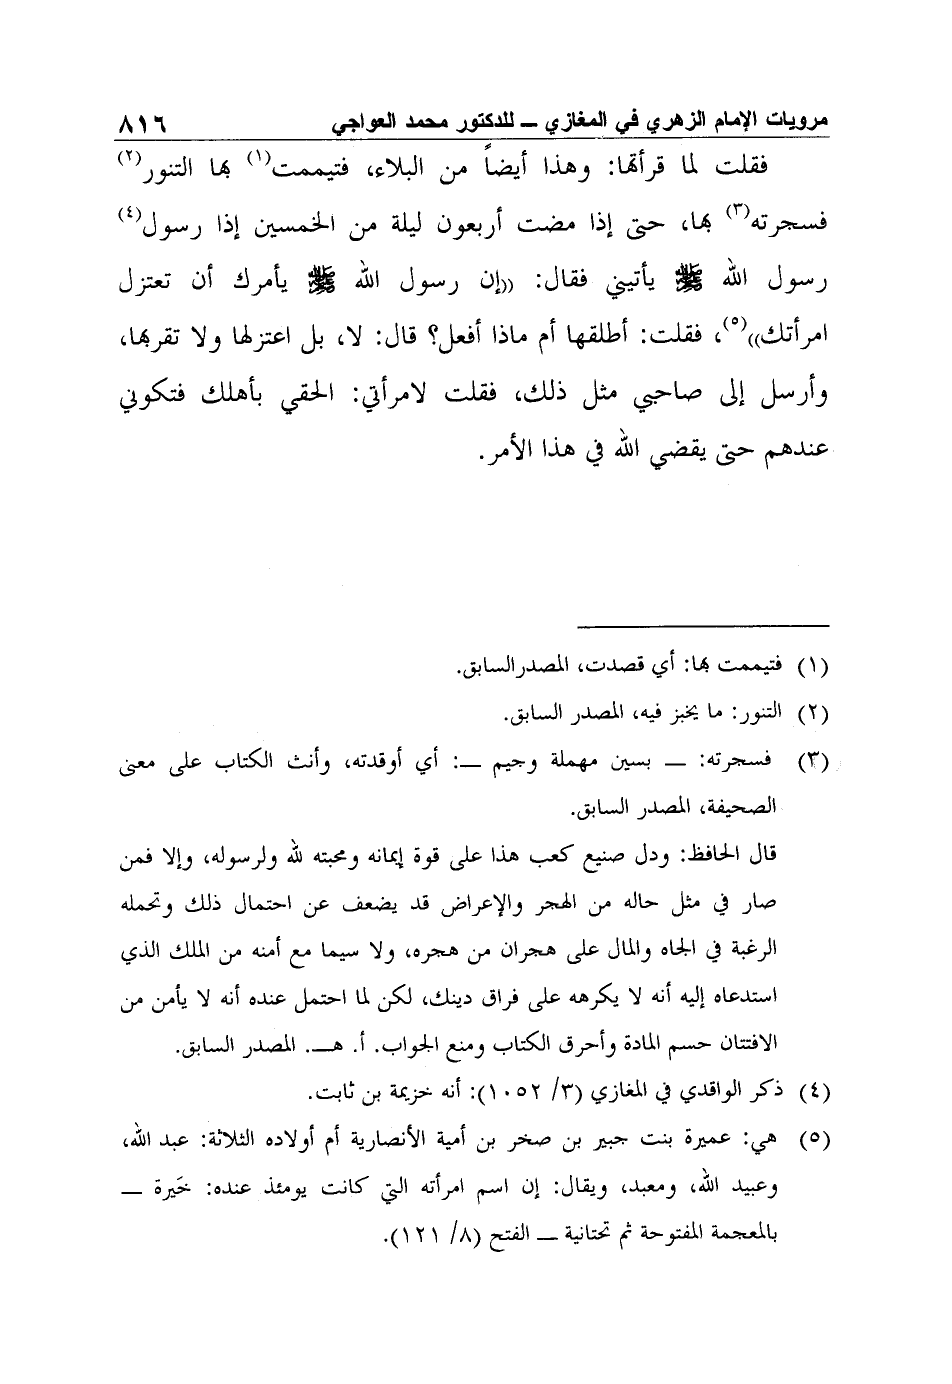 مرويات الإمام الزهري في المغازي ــ للدكتور محمد العواجي ٨١٦
فقلت لما قرأتها: وهذا أيضاً من البلاء، فتيممت(١) بها التنور(٢)
فسجرته(٣) بها، حتى إذا مضت أربعون ليلة من الخمسين إذا رسول(٤)
رسول الله ﷺ يأتيني فقال: ((إن رسول الله ﷺ يأمرك أن تعتزل
امرأتك))(٥)، فقلت: أطلقها أم ماذا أفعل؟ قال: لا، بل اعتزلها ولا تقربها،
وأرسل إلى صاحبي مثل ذلك، فقلت لامرأتي: الحقي بأهلك فتكوني
عندهم حتى يقضي الله في هذا الأمر.
(١) فتيممت بها: أي قصدت، المصدرالسابق.
(٢) التنور: ما يخبز فيه، المصدر السابق.
(٣) فسجرته: ــ بسين مهملة وجيم ــ: أي أوقدته، وأنث الكتاب على معنى
الصحيفة، المصدر السابق.
قال الحافظ: ودل صنيع كعب هذا على قوة إيمانه ومحبته لله ولرسوله، وإلا فمن
صار في مثل حاله من الهجر والإعراض قد يضعف عن احتمال ذلك وتحمله
الرغبة في الجاه والمال على هجران من هجره، ولا سيما مع أمنه من الملك الذي
استدعاه إليه أنه لا يكرهه على فراق دينك، لكن لما احتمل عنده أنه لا يأمن من
الافتتان حسم المادة وأحرق الكتاب ومنع الجواب. أ. هــ. المصدر السابق.
(٤) ذكر الواقدي في المغازي (٣/ ١٠٥٢): أنه خزيمة بن ثابت.
(٥) هي: عميرة بنت جبير بن صخر بن أمية الأنصارية أم أولاده الثلاثة: عبد الله،
وعبيد الله، ومعبد، ويقال: إن اسم امرأته التي كانت يومئذ عنده: خَيرة ــ
بالمعجمة المفتوحة ثم تحتانية ــ الفتح (٨/ ١٢١).